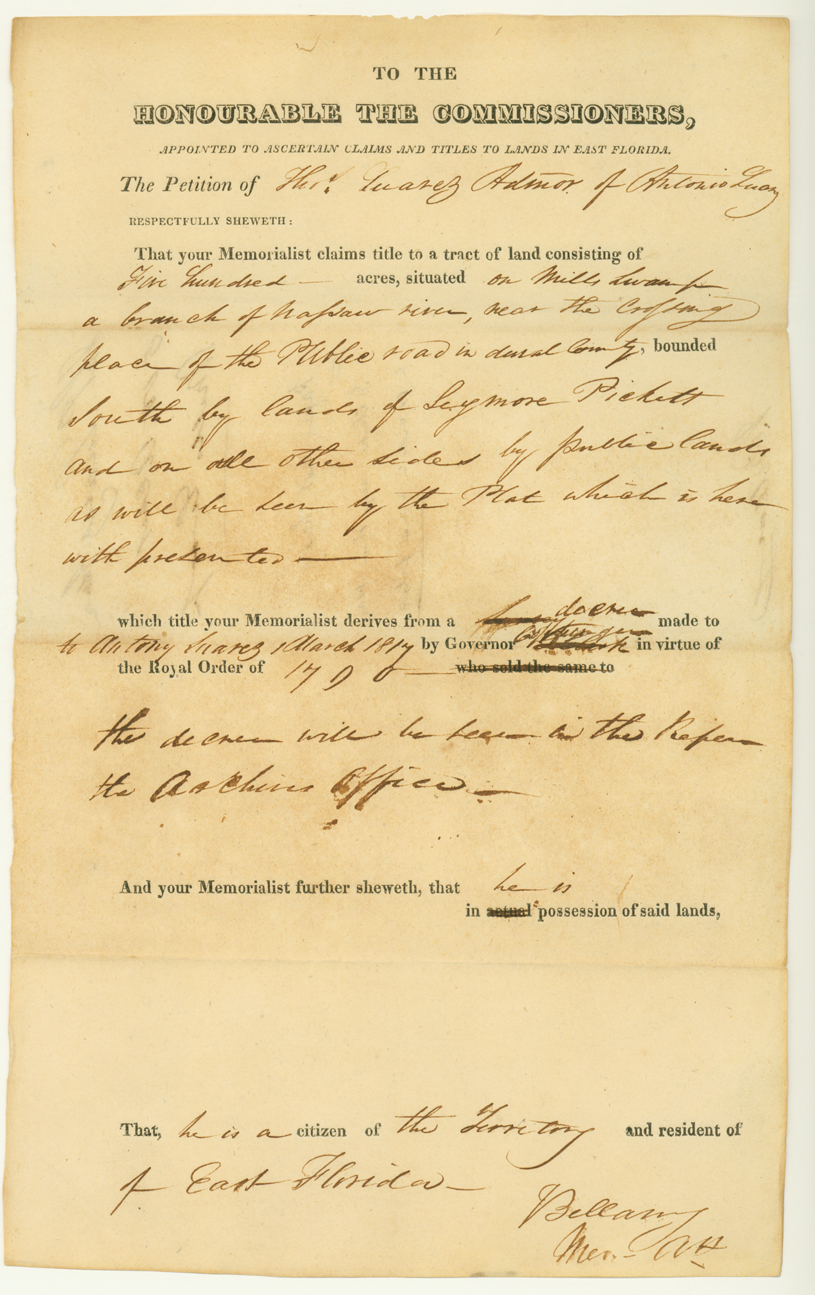 TO THE
HONOURABLE THE COMMISSIONERS,
APPOINTED TO ASCERTAIN CLAIMS AND TITLES TO LANDS IN EAST FLORIDA.
The Petition of Thos. Suarez Admor. of Antonio Suarez
RESPECTFULLY SHEWETH:
That your Memorialist claims title to a tract of land consisting of
Five hundred — acres, situated on Mills Swamp
a branch of Nassau river, near the Crossing
place of the Public road in duval County, bounded
South by lands of Seymore Pickett
and on all other sides by public lands
as will be seen by the Plat which is here
with presented —
decree
which title your Memorialist derives from a made to
to Antony Suarez 1 March 1817 by Governor Coppinger in virtue of
the Royal Order of 1790 — who sold the same to
the decree will be seen in the
the Archives Office —
And your Memorialist further sheweth, that he is
in actual possession of said lands,
That, he is a citizen of the Territory and resident of
of East Florida —
Bellamy
Mer. Att